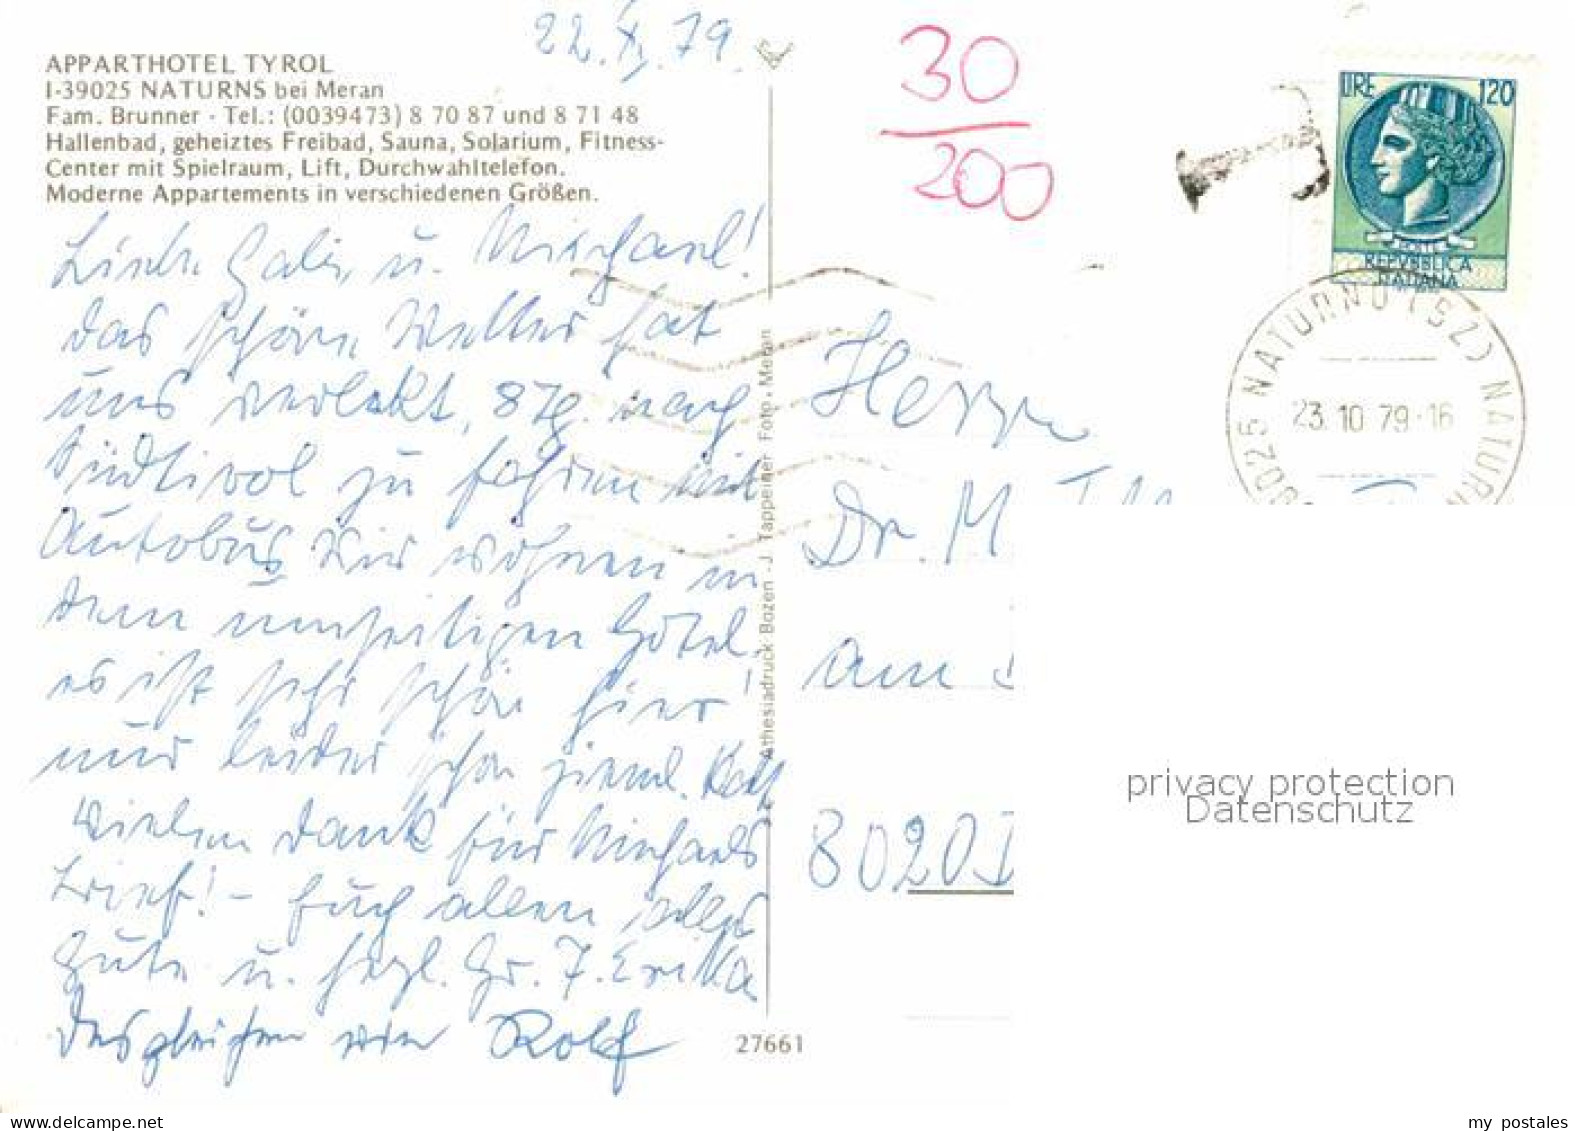 22. X. 79.
APPARTHOTEL TYROL
I-39025 NATURNS bei Meran
Fam. Brunner - Tel.: (0039473) 8 70 87 und 8 71 48
Hallenbad, geheiztes Freibad, Sauna, Solarium, Fitness-
Center mit Spielraum, Lift, Durchwahltelefon.
Moderne Appartements in verschiedenen Größen.
Liebe Gabi, u. Michael!
das schöne Wetter hat
uns verlokt, 8 Tg. nach
Südtirol zu fahren mit
Autobus Wir wohnen in
dem umseitigen Hotel.
es ist sehr schön hier!
nur leider schon zieml. Kalt
Vielen Dank für Michaels
Brief! - Euch allen alles
Gute u. herzl. Gr. T. Erika
Desgleichen von Rolf
30
200
T
LIRE 120
REPVBBLICA
ITALIANA
39025 NATURNO (BZ) NATURN
23.10.79-16
Herrn
Dr. M
am
8020
Athesiadruck Bozen - J. Tappeiner Foto - Meran
27661
privacy protection
Datenschutz
my postales